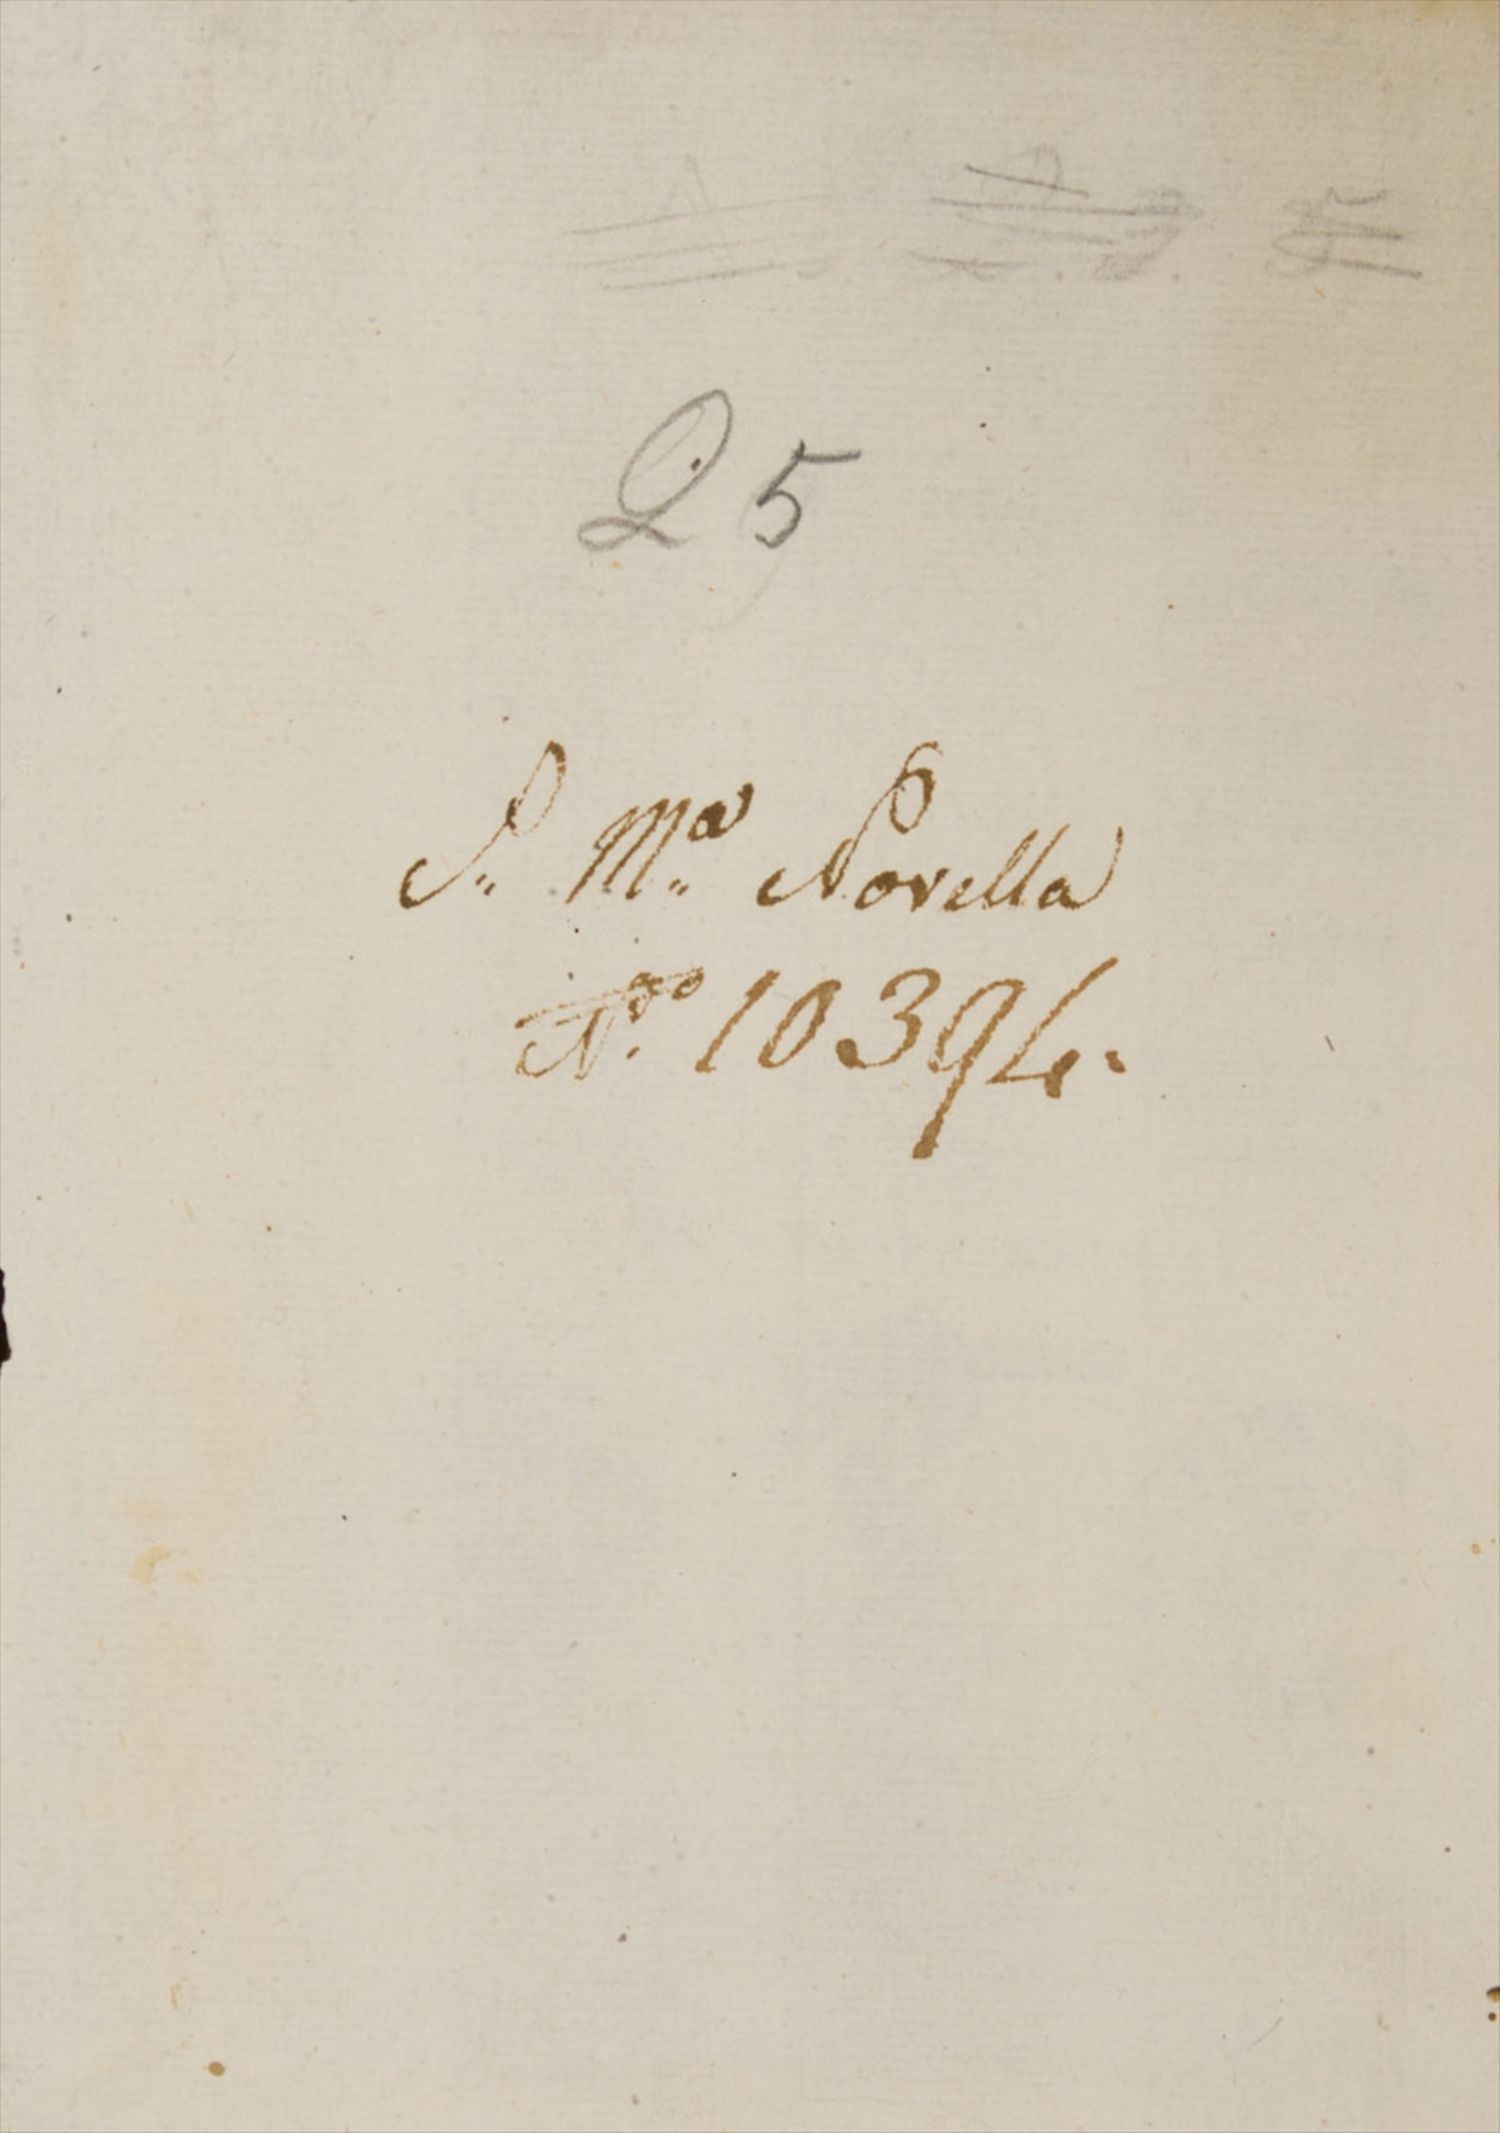 Q 5
S. Mª. Novella
N.º 10394.